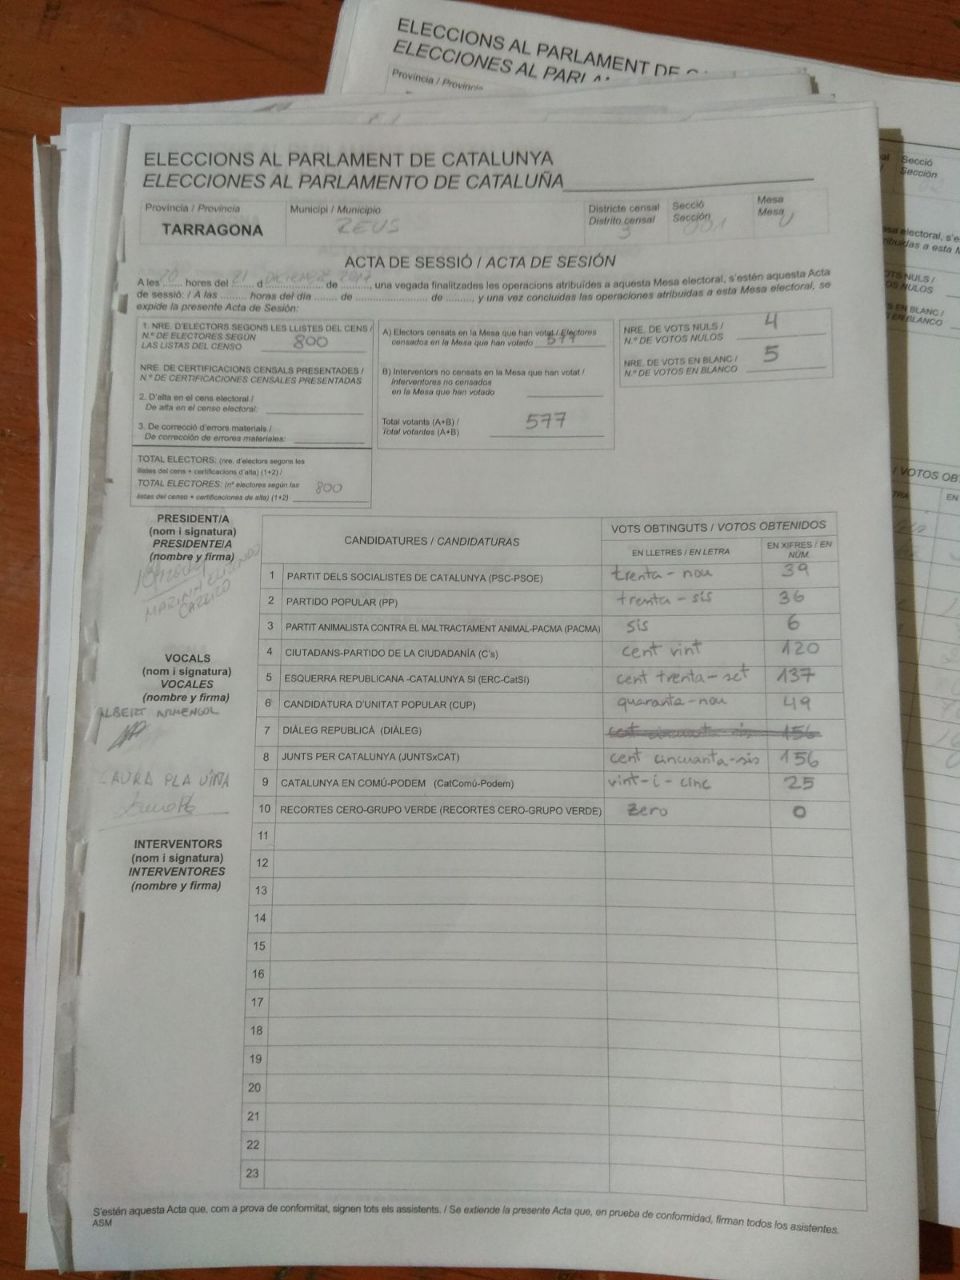 ELECCIONS AL PARLAMENT DE C
ELECCIONES AL PARLAM
Província / Provincia
Secció
Sección
ELECCIONS AL PARLAMENT DE CATALUNYA
ELECCIONES AL PARLAMENTO DE CATALUÑA
Província / Provincia
TARRAGONA
Municipi / Municipio
REUS
Districte censal
Distrito censal
3
Secció
Sección
001
Mesa
Mesa
U
ACTA DE SESSIÓ / ACTA DE SESIÓN
A les 20 hores del 21 d DICIEMBRE de 2017, una vegada finalitzades les operacions atribuïdes a aquesta Mesa electoral, s'estén aquesta Acta
de sessió: / A las ........ horas del día ....... de ........................ de ........, y una vez concluidas las operaciones atribuidas a esta Mesa electoral, se
expide la presente Acta de Sesión:
1. NRE. D'ELECTORS SEGONS LES LLISTES DEL CENS /
N.º DE ELECTORES SEGÚN
LAS LISTAS DEL CENSO 800
NRE. DE CERTIFICACIONS CENSALS PRESENTADES /
N.º DE CERTIFICACIONES CENSALES PRESENTADAS
2. D'alta en el cens electoral /
De alta en el censo electoral:
3. De correcció d'errors materials /
De corrección de errores materiales:
TOTAL ELECTORS: (nre. d'electors segons les
llistes del cens + certificacions d'alta) (1+2) /
TOTAL ELECTORES: (nº electores según las
listas del censo + certificaciones de alta) (1+2) 800
A) Electors censats en la Mesa que han votat / Electores
censados en la Mesa que han votado 577
B) Interventors no censats en la Mesa que han votat /
Interventores no censados
en la Mesa que han votado
Total votants (A+B) /
Total votantes (A+B) 577
NRE. DE VOTS NULS /
N.º DE VOTOS NULOS 4
NRE. DE VOTS EN BLANC /
N.º DE VOTOS EN BLANCO 5
PRESIDENT/A
(nom i signatura)
PRESIDENTE/A
(nombre y firma)
MARINA
CARRIZO
VOCALS
(nom i signatura)
VOCALES
(nombre y firma)
ALBERT ARMENGOL
LAURA PLA VIÑA
INTERVENTORS
(nom i signatura)
INTERVENTORES
(nombre y firma)
CANDIDATURES / CANDIDATURAS
VOTS OBTINGUTS / VOTOS OBTENIDOS
EN LLETRES / EN LETRA
EN XIFRES / EN NÚM.
1 PARTIT DELS SOCIALISTES DE CATALUNYA (PSC-PSOE) trenta-nou 39
2 PARTIDO POPULAR (PP) trenta-sis 36
3 PARTIT ANIMALISTA CONTRA EL MALTRACTAMENT ANIMAL-PACMA (PACMA) sis 6
4 CIUTADANS-PARTIDO DE LA CIUDADANÍA (C's) cent vint 120
5 ESQUERRA REPUBLICANA -CATALUNYA SI (ERC-CatSí) cent trenta-set 137
6 CANDIDATURA D'UNITAT POPULAR (CUP) quaranta-nou 49
7 DIÀLEG REPUBLICÀ (DIÀLEG) cent cincuanta-sis 156
8 JUNTS PER CATALUNYA (JUNTSxCAT) cent cincuanta-sis 156
9 CATALUNYA EN COMÚ-PODEM (CatComú-Podem) vint-i-cinc 25
10 RECORTES CERO-GRUPO VERDE (RECORTES CERO-GRUPO VERDE) zero 0
11
12
13
14
15
16
17
18
19
20
21
22
23
S'estén aquesta Acta que, com a prova de conformitat, signen tots els assistents. / Se extiende la presente Acta que, en prueba de conformidad, firman todos los asistentes.
ASM